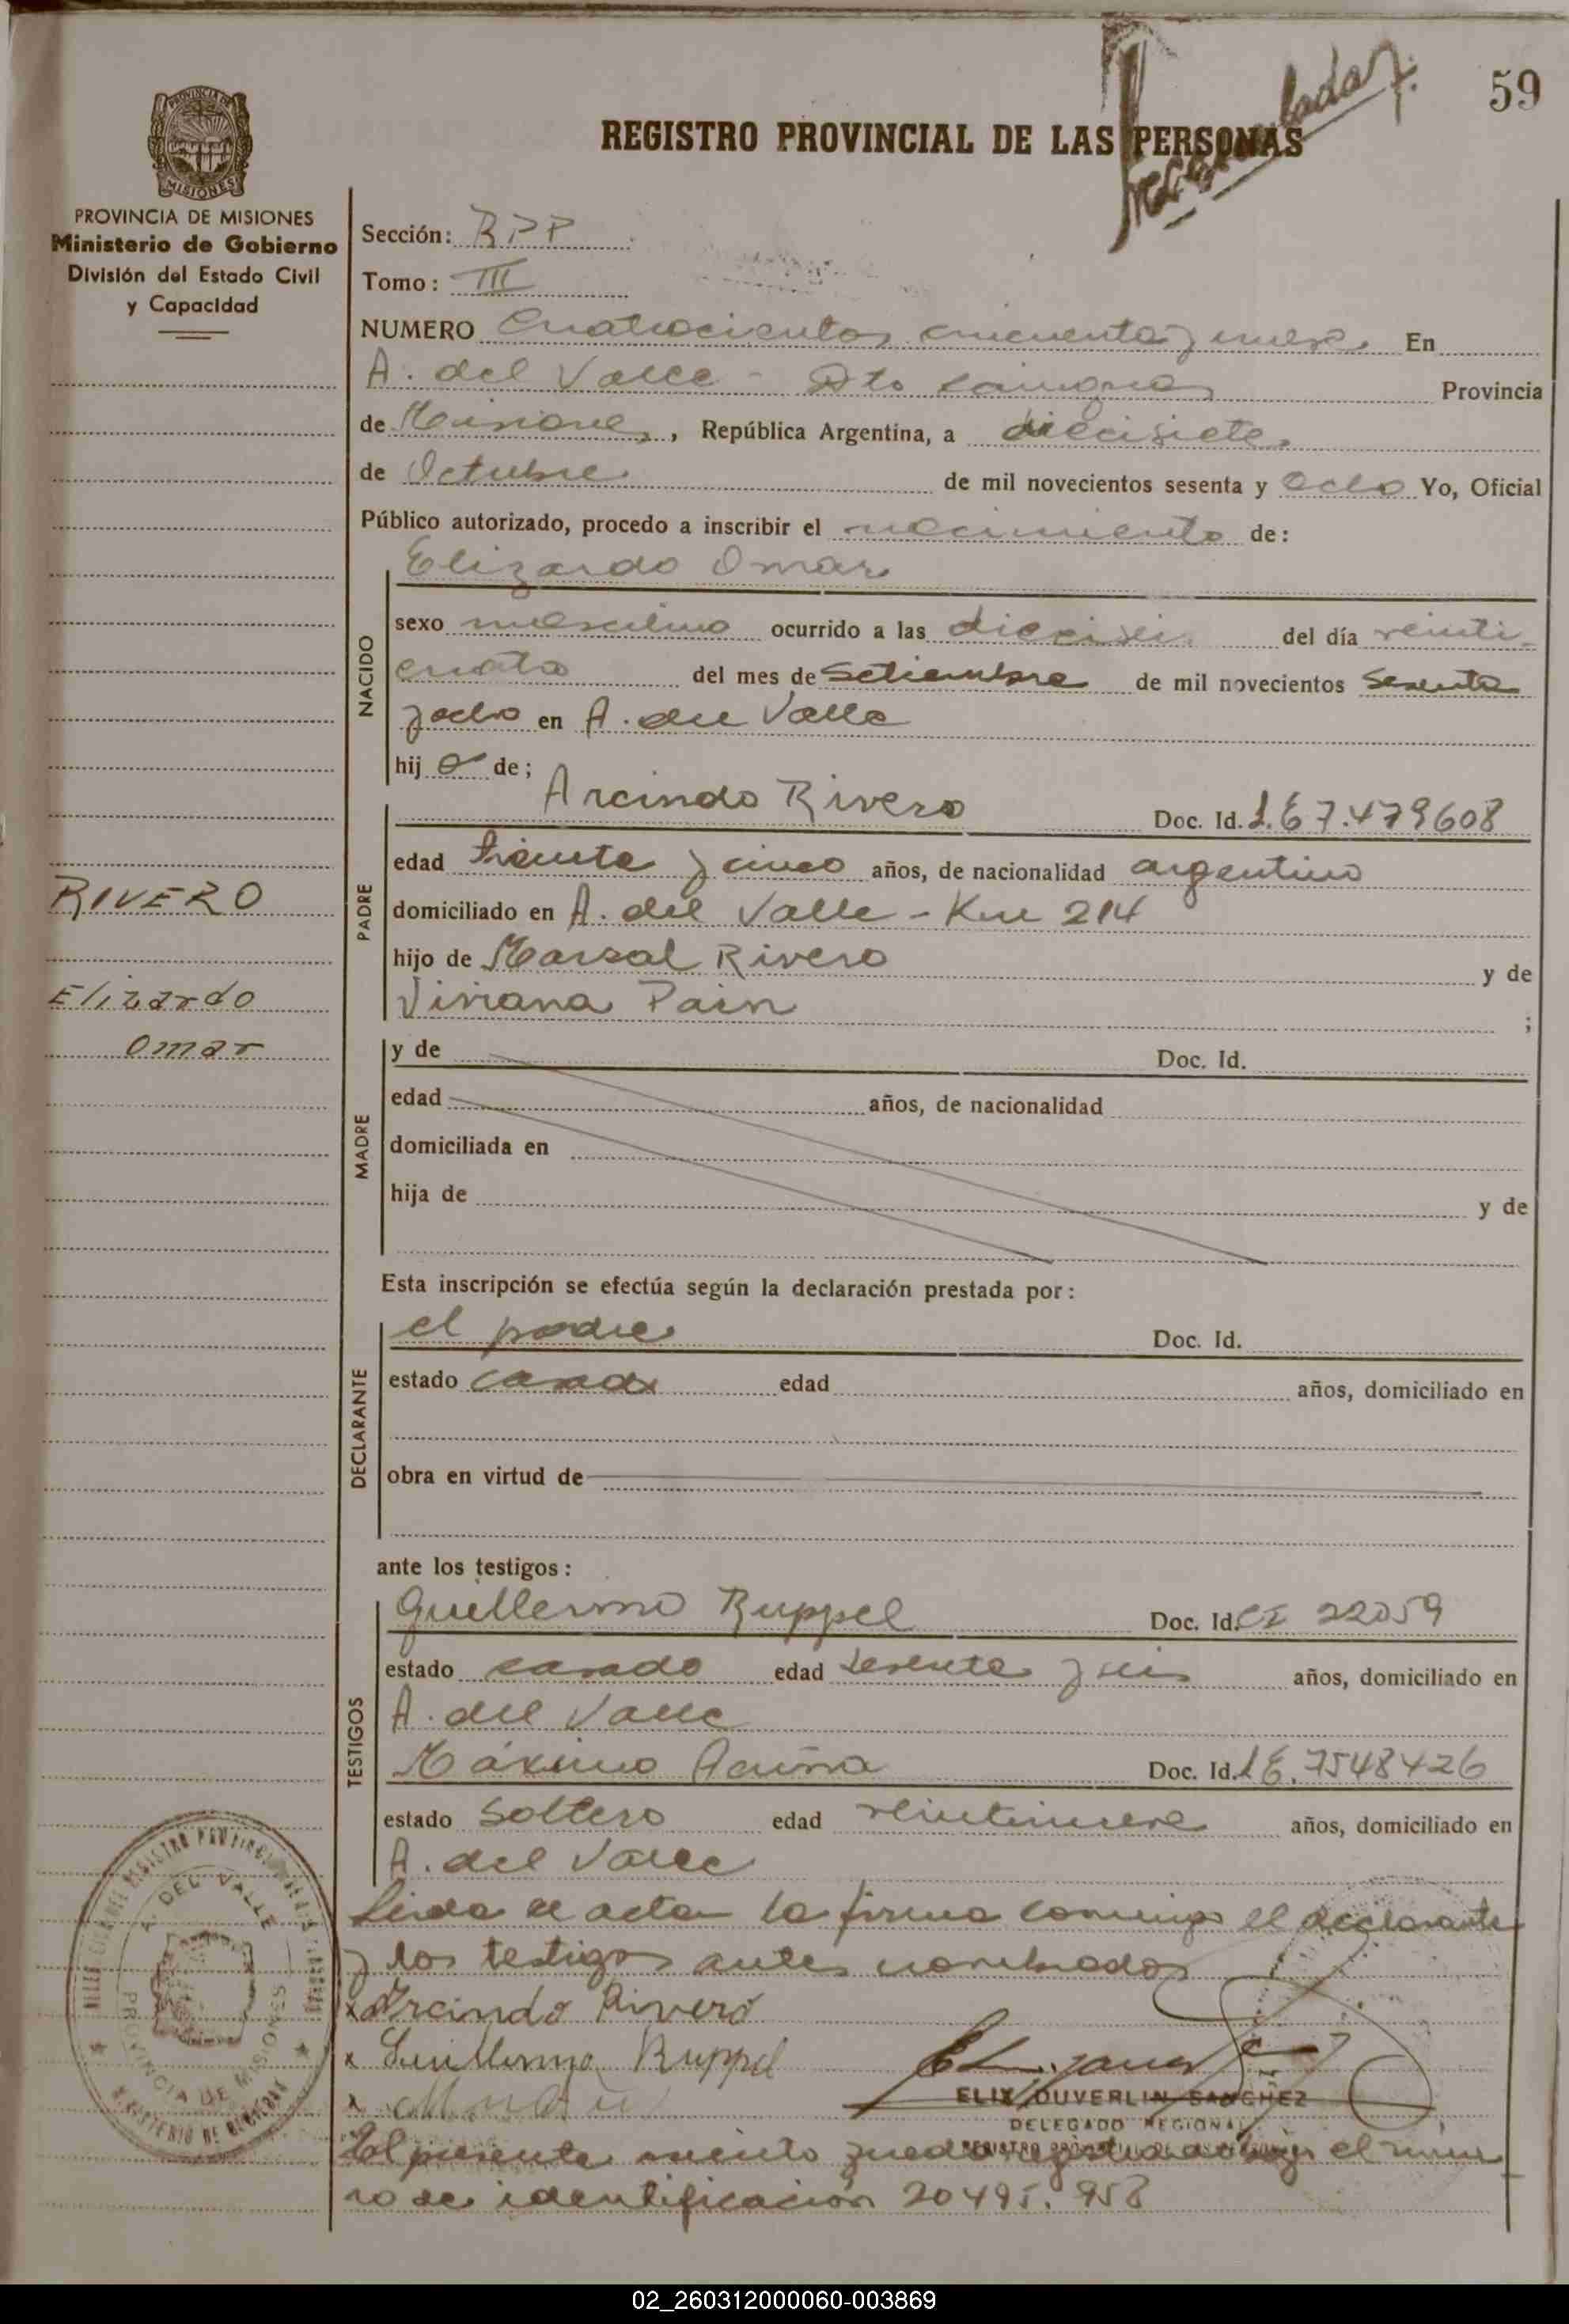 59
REGISTRO PROVINCIAL DE LAS PERSONAS
PROVINCIA DE MISIONES
MISIONES
PROVINCIA DE MISIONES
Ministerio de Gobierno
División del Estado Civil
y Capacidad
Sección: RPP
Tomo: III
NUMERO Cuatrocientos cincuenta y nueve En
A. del Valle - Dto Cainguas Provincia
de Misiones, República Argentina, a diecisiete
de Octubre de mil novecientos sesenta y ocho Yo, Oficial
Público autorizado, procedo a inscribir el nacimiento de:
Elizardo Omar
NACIDO
sexo masculino ocurrido a las dieciseis del día veinti-
cuatro del mes de Setiembre de mil novecientos Sesenta
y ocho en A. del Valle
hij o de;
Arcindo Rivero Doc. Id. L.E 7.479608
PADRE
edad treinta y cinco años, de nacionalidad argentino
RIVERO
domiciliado en A. del Valle - Km 214
hijo de Marsal Rivero y de
Elizardo
Viviana Pain ;
Omar
y de Doc. Id.
MADRE
edad años, de nacionalidad
domiciliada en
hija de y de
Esta inscripción se efectúa según la declaración prestada por:
el padre Doc. Id.
DECLARANTE
estado casado edad años, domiciliado en
obra en virtud de
ante los testigos:
Guillermo Ruppel Doc. Id. CI 22059
TESTIGOS
estado casado edad sesenta y seis años, domiciliado en
A. del Valle
Máximo Acuña Doc. Id. L.E. 7548426
estado Soltero edad veintinueve años, domiciliado en
A. del Valle
Leida el acta la firma conmigo el declarante
y los testigos antes nombrados
x Arcindo Rivero
x Guillermo Ruppel
x
ELIX DUVERLIN SANCHEZ
DELEGADO REGIONAL
A. DEL VALLE
PROVINCIA DE MISIONES
El presente asiento queda registrado bajo el núme
ro de identificación 20495.958
02_260312000060-003869